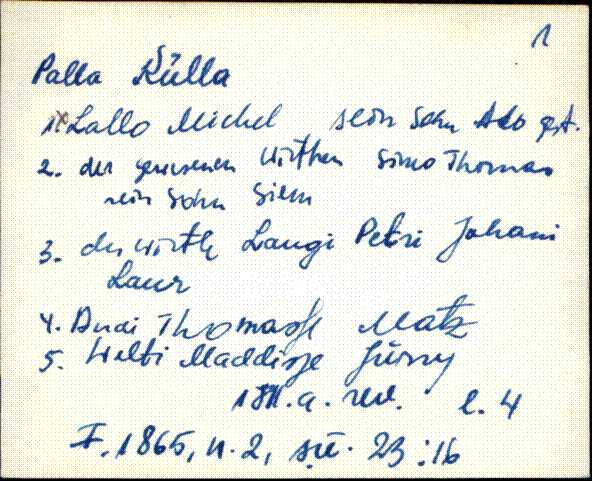 1
Palla Külla
1. Lallo Michel sein Sohn Ado gest.
2. der gewesenen Wirthen Simo Thomas
sein Sohn Siem
3. der Wirth Laugi Petri Johani
Laur
4. Andi Thomase Matz
5. Welti Maddisse Jürry
1811.a. rev. l. 4
F. 1865, n. 2, sü. 23:16